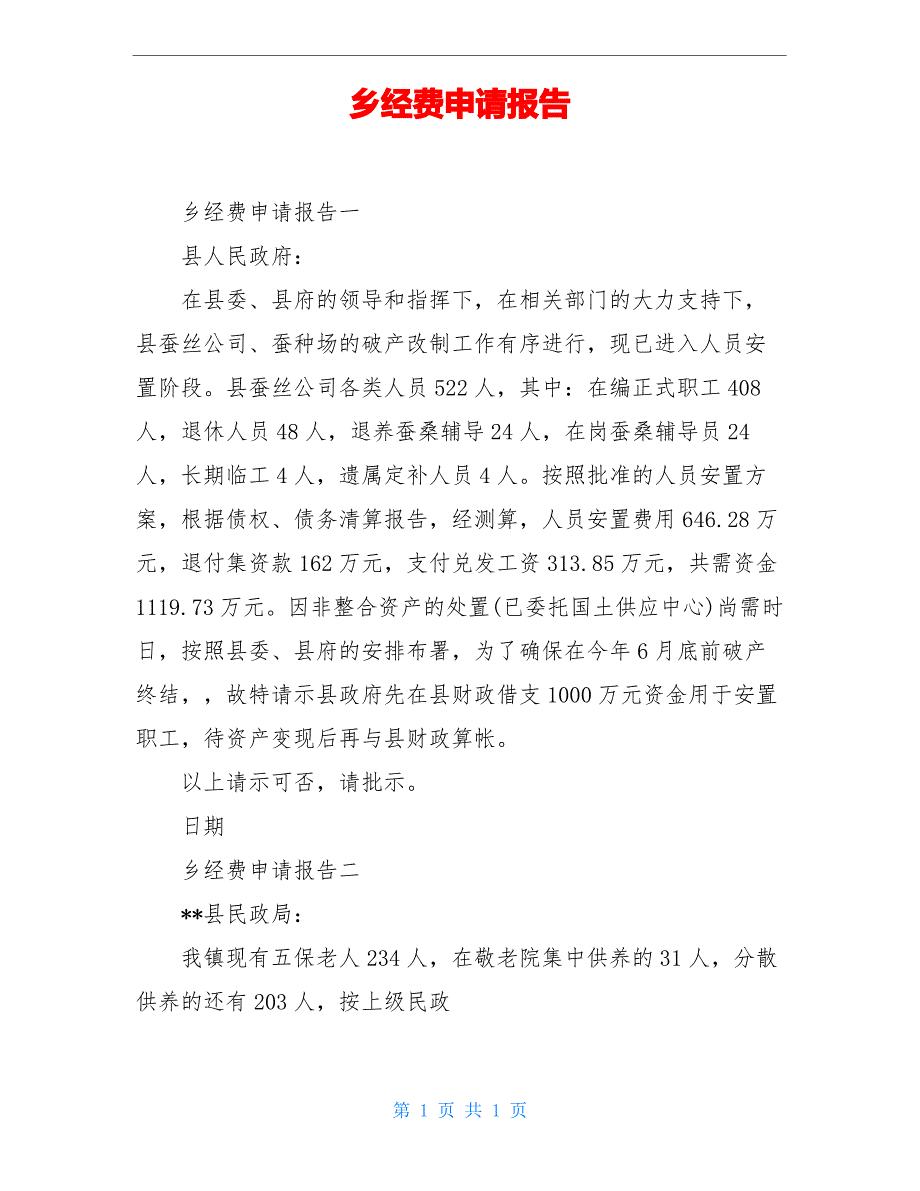 乡经费申请报告
乡经费申请报告一
县人民政府：
在县委、县府的领导和指挥下，在相关部门的大力支持下，
县蚕丝公司、蚕种场的破产改制工作有序进行，现已进入人员安
置阶段。县蚕丝公司各类人员 522 人，其中：在编正式职工 408
人，退休人员 48 人，退养蚕桑辅导 24 人，在岗蚕桑辅导员 24
人，长期临工 4 人，遗属定补人员 4 人。按照批准的人员安置方
案，根据债权、债务清算报告，经测算，人员安置费用 646.28 万
元，退付集资款 162 万元，支付兑发工资 313.85 万元，共需资金
1119.73 万元。因非整合资产的处置(已委托国土供应中心)尚需时
日，按照县委、县府的安排布署，为了确保在今年 6 月底前破产
终结，，故特请示县政府先在县财政借支 1000 万元资金用于安置
职工，待资产变现后再与县财政算帐。
以上请示可否，请批示。
日期
乡经费申请报告二
**县民政局：
我镇现有五保老人 234 人，在敬老院集中供养的 31 人，分散
供养的还有 203 人，按上级民政
第 1 页 共 1 页